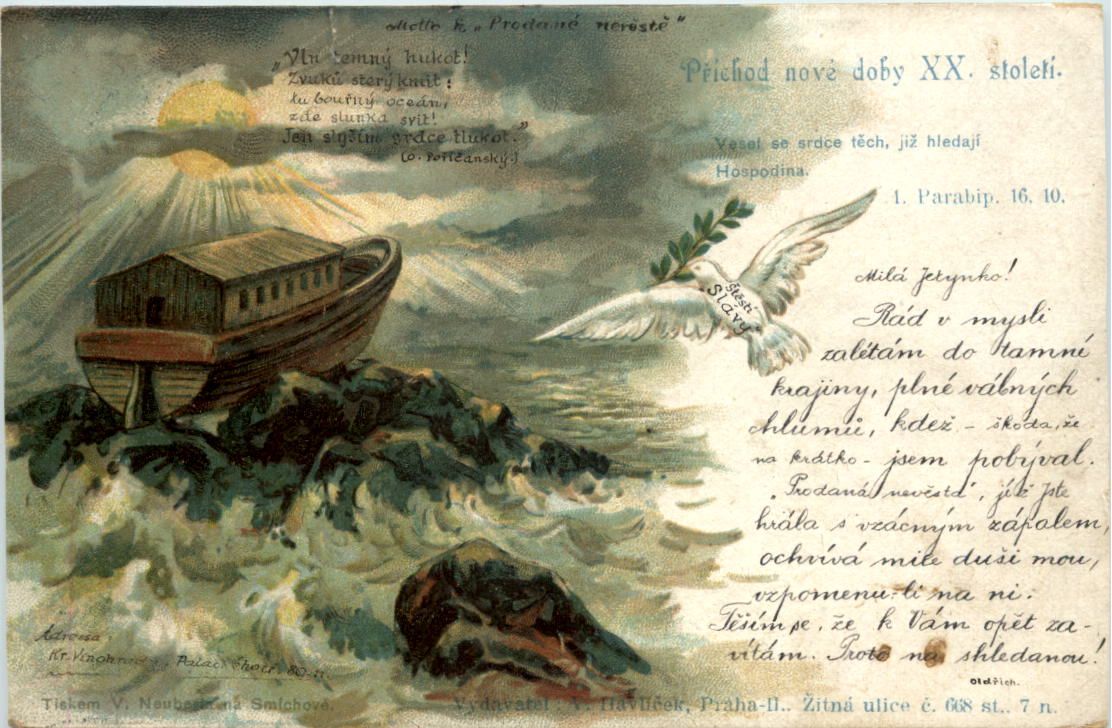 Motto k „Prodané nevěstě“
„Vln temný hukot!
Zvuků sterý knut:
tu bouřný oceán,
zde slunka svit!
Jen slyším srdce tlukot.“
(O. Poříčanský.)
Příchod nové doby XX. století.
Vesel se srdce těch, již hledají
Hospodina.
1. Parabip. 16, 10.
štěstí
Slávy
Milá Jetynko!
Rád v mysli
zalétám do tamné
krajiny, plné vábných
chlumů, kdež – škoda, že
na krátko – jsem pobýval.
„Prodaná nevěsta“, jíž jste
hrála s vzácným zápalem,
ochvívá mile duši mou,
vzpomenu-li na ni.
Těším se, že k Vám opět za-
vítám. Proto na shledanou!
Oldřich.
Adressa:
Kr. Vinohrady, Palack
Tiskem V. Neuberta na Smíchově.
Vydavatel: V. Havlíček, Praha-II., Žitná ulice č. 668 st., 7 n.